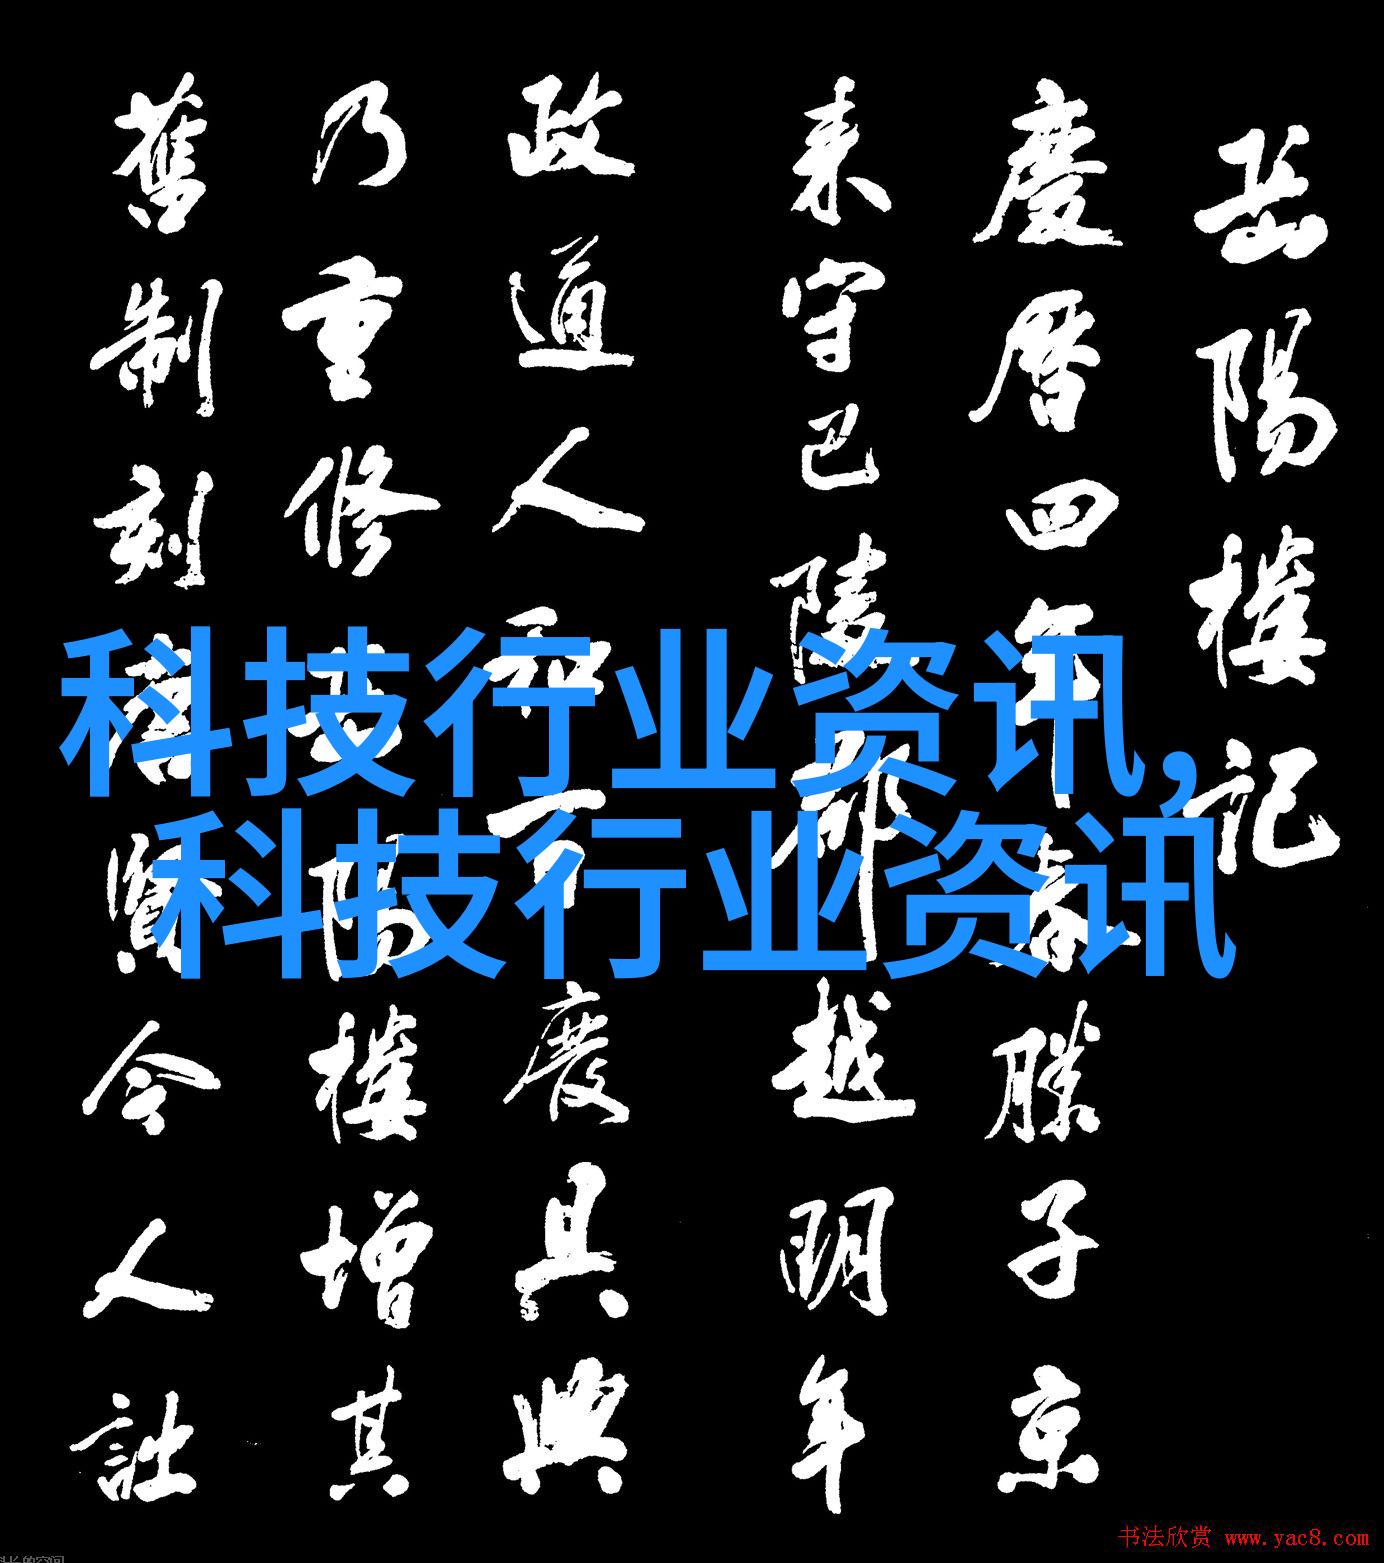 岳陽樓記
慶曆四年春滕子京
来守巴陵郡越明年
政通人和百廢具興
乃重修岳陽樓增其
舊制刻唐賢今人詩
科技行业资讯,
科技行业资讯
书法欣赏 www.yac8.com